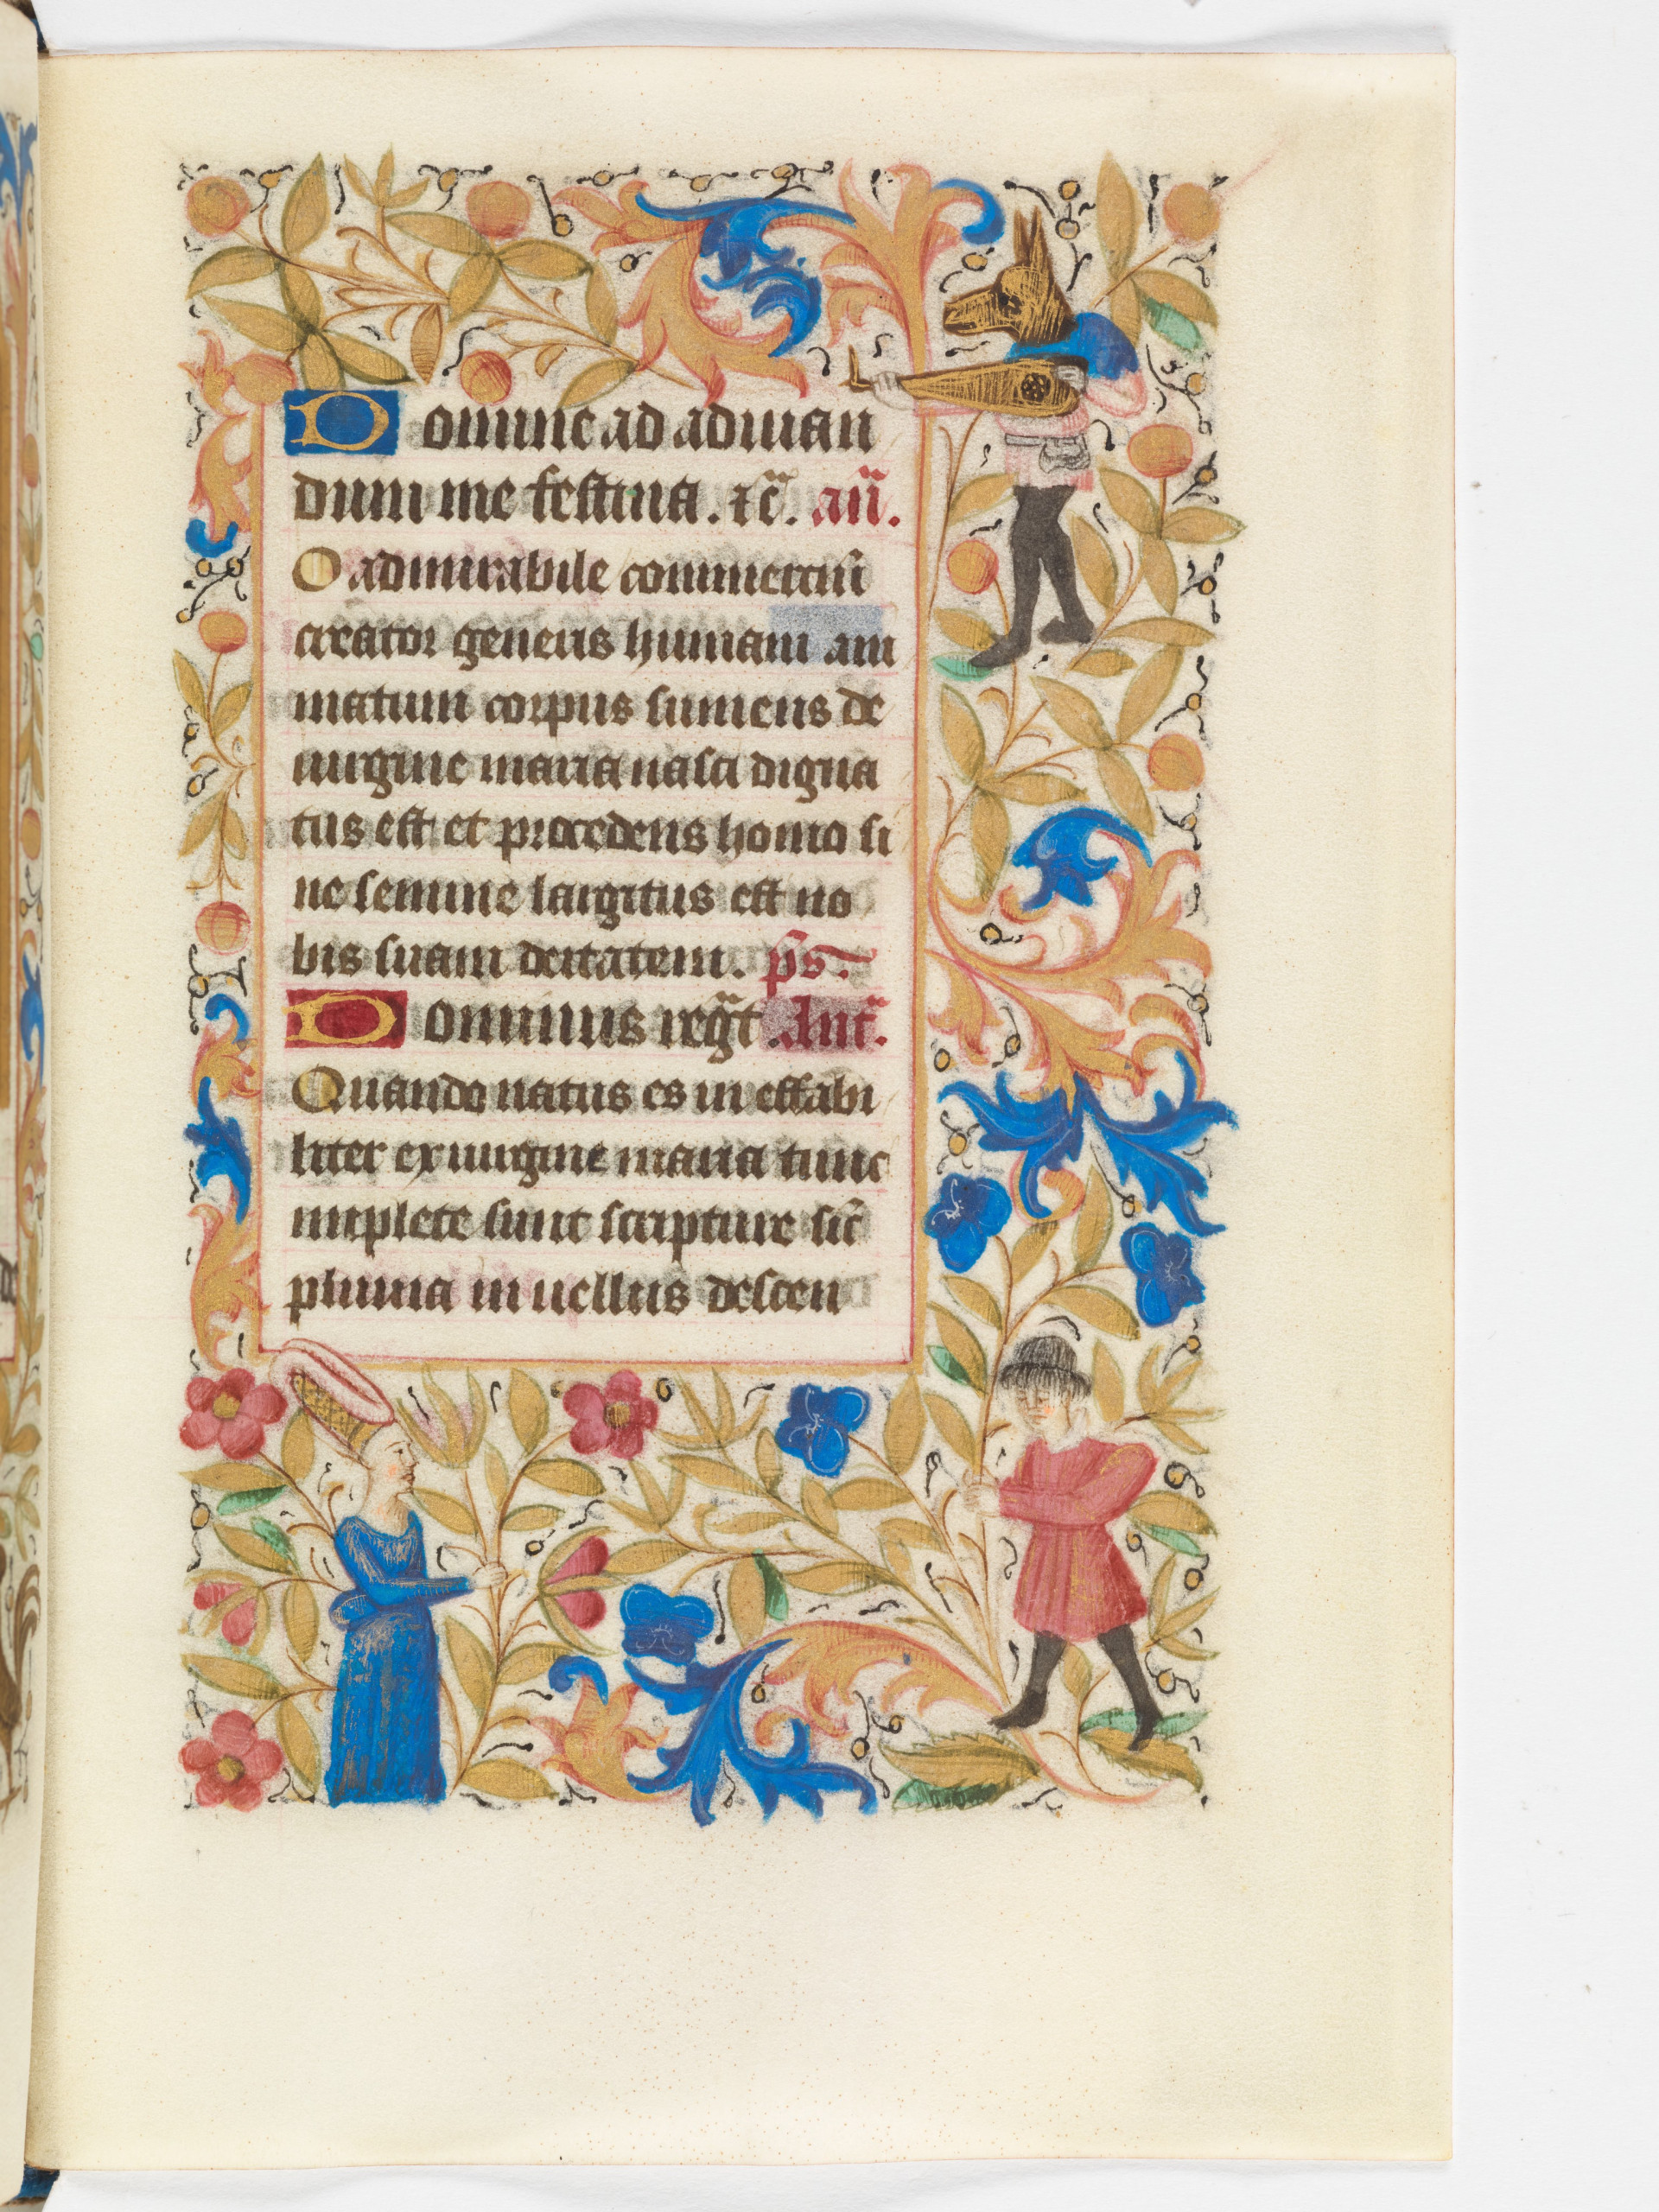 Domine ad adiuuan
dum me festina. ⁊c̄. añ.
O admirabile commerciū
creator generis humani ani
matum corpus sumens de
uirgine maria nasci digna
tus est et procedens homo si
ne semine largitus est no
bis suam deitatem. ps.
Dominus regͣt. Antͣ.
Quando natus es in effabi
liter ex uirgine maria tunc
implete sunt scripture sic̄
pluuia in uellus descen